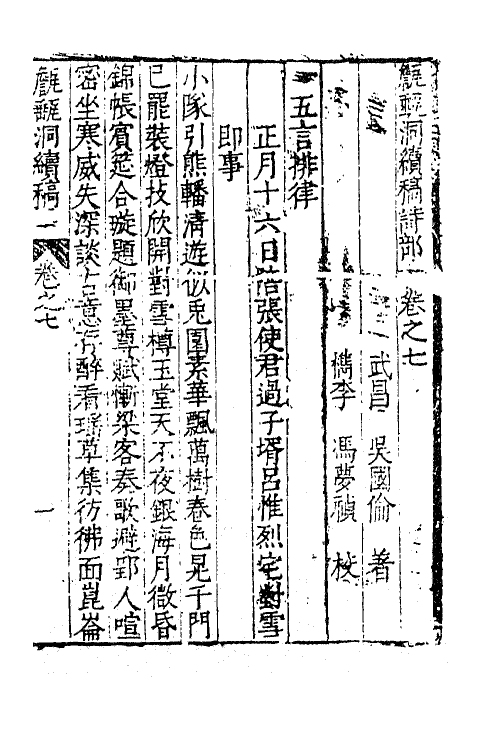 甔甀洞續稿詩部 卷之七
武昌 吳國倫 著
檇李 馮夢禎 校
五言排律
正月十六日陪張使君過子壻呂惟烈宅對雪
即事
小隊引熊轓清遊似兎園素華飄萬樹春色晃千門
已罷裝燈技欣開對雪樽玉堂天不夜銀海月微昏
錦帳賓筵合璇題御墨尊賦慚梁客奏歌避郢人喧
密坐寒威失深談古意存醉看瑶草集彷彿面崑崙
甔甀洞續稿 卷之七 一